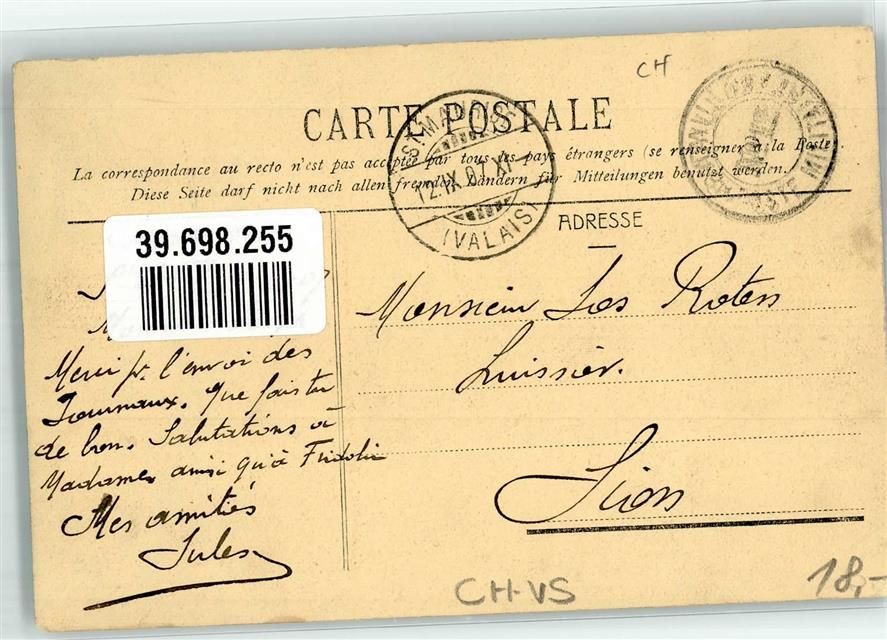 CH
CARTE POSTALE
La correspondance au recto n'est pas acceptée par tous les pays étrangers (se renseigner à la Poste).
Diese Seite darf nicht nach allen fremden Ländern für Mitteilungen benutzt werden.
ST MAURICE
12.IX.0 XI
(VALAIS)
ADRESSE
39.698.255
Monsieur Jos Roten
huissier.
Sion
Merci pr. l'envoi des
Journaux. Que fais tu
de bon. Salutations à
Madame ainsi qu'à Fridolin
Mes amitiés
Jules
CH-VS
18,-